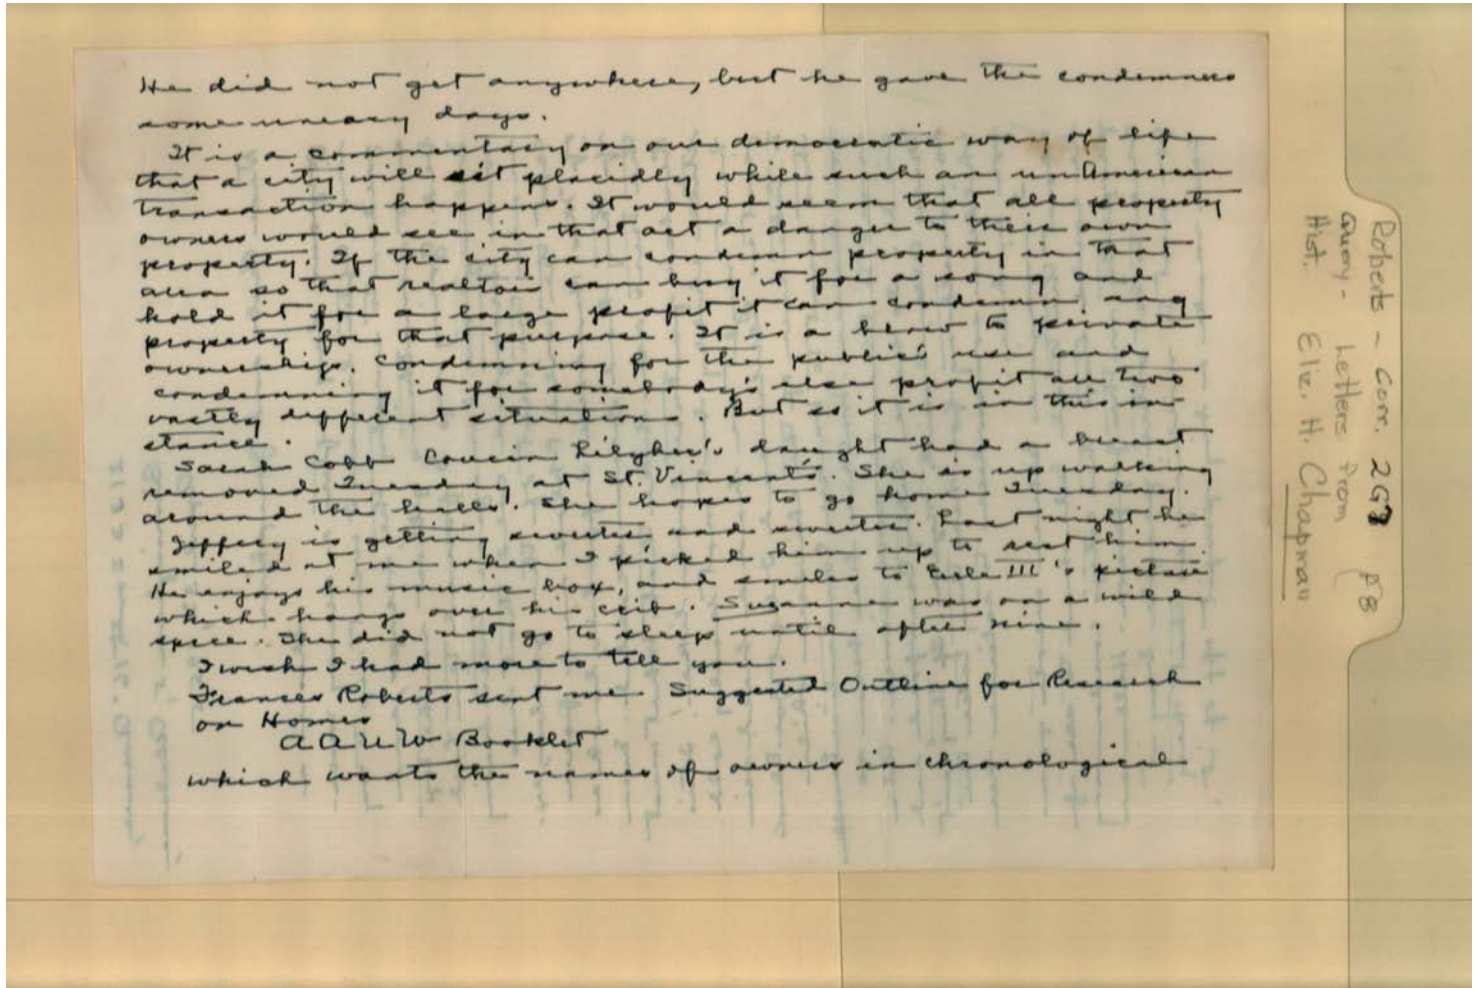 He did not get anywhere, but he gave the condemners
some uneasy days.
It is a commentary on our democratic way of life
that a city will sit placidly while such an unAmerican
transaction happens. It would seem that all property
owners would see in that act a danger to their own
property. If the city can condemn property in that
area so that realtors can buy it for a song and
hold it for a large profit it can condemn any
property for that purpose. It is a blow to private
ownership. Condemning for the public's use and
condemning it for somebody's else profit are two
vastly different situations. But so it is in this in
stance.
Sarah Cobb Cousin daught had a breast
removed Tuesday at St. Vincent's. She is up walking
around the halls. She hopes to go home Tuesday.
Jeffery is getting sweeter and sweeter. Last night he
smiled at me when I picked him up to rest him.
He enjoys his music box, and smiles to III's picture
which hangs over his crib. Suzanne was on a wild
spree. She did not go to sleep until after nine.
I wish I had more to tell you.
Frances Roberts sent me Suggested Outline for Research
on Homes
AAUW Booklet
which wants the names of owners in chronological
Roberts - Corr. 2G8 p8
Query - Letters from
Hist. Eliz. H. Chapman